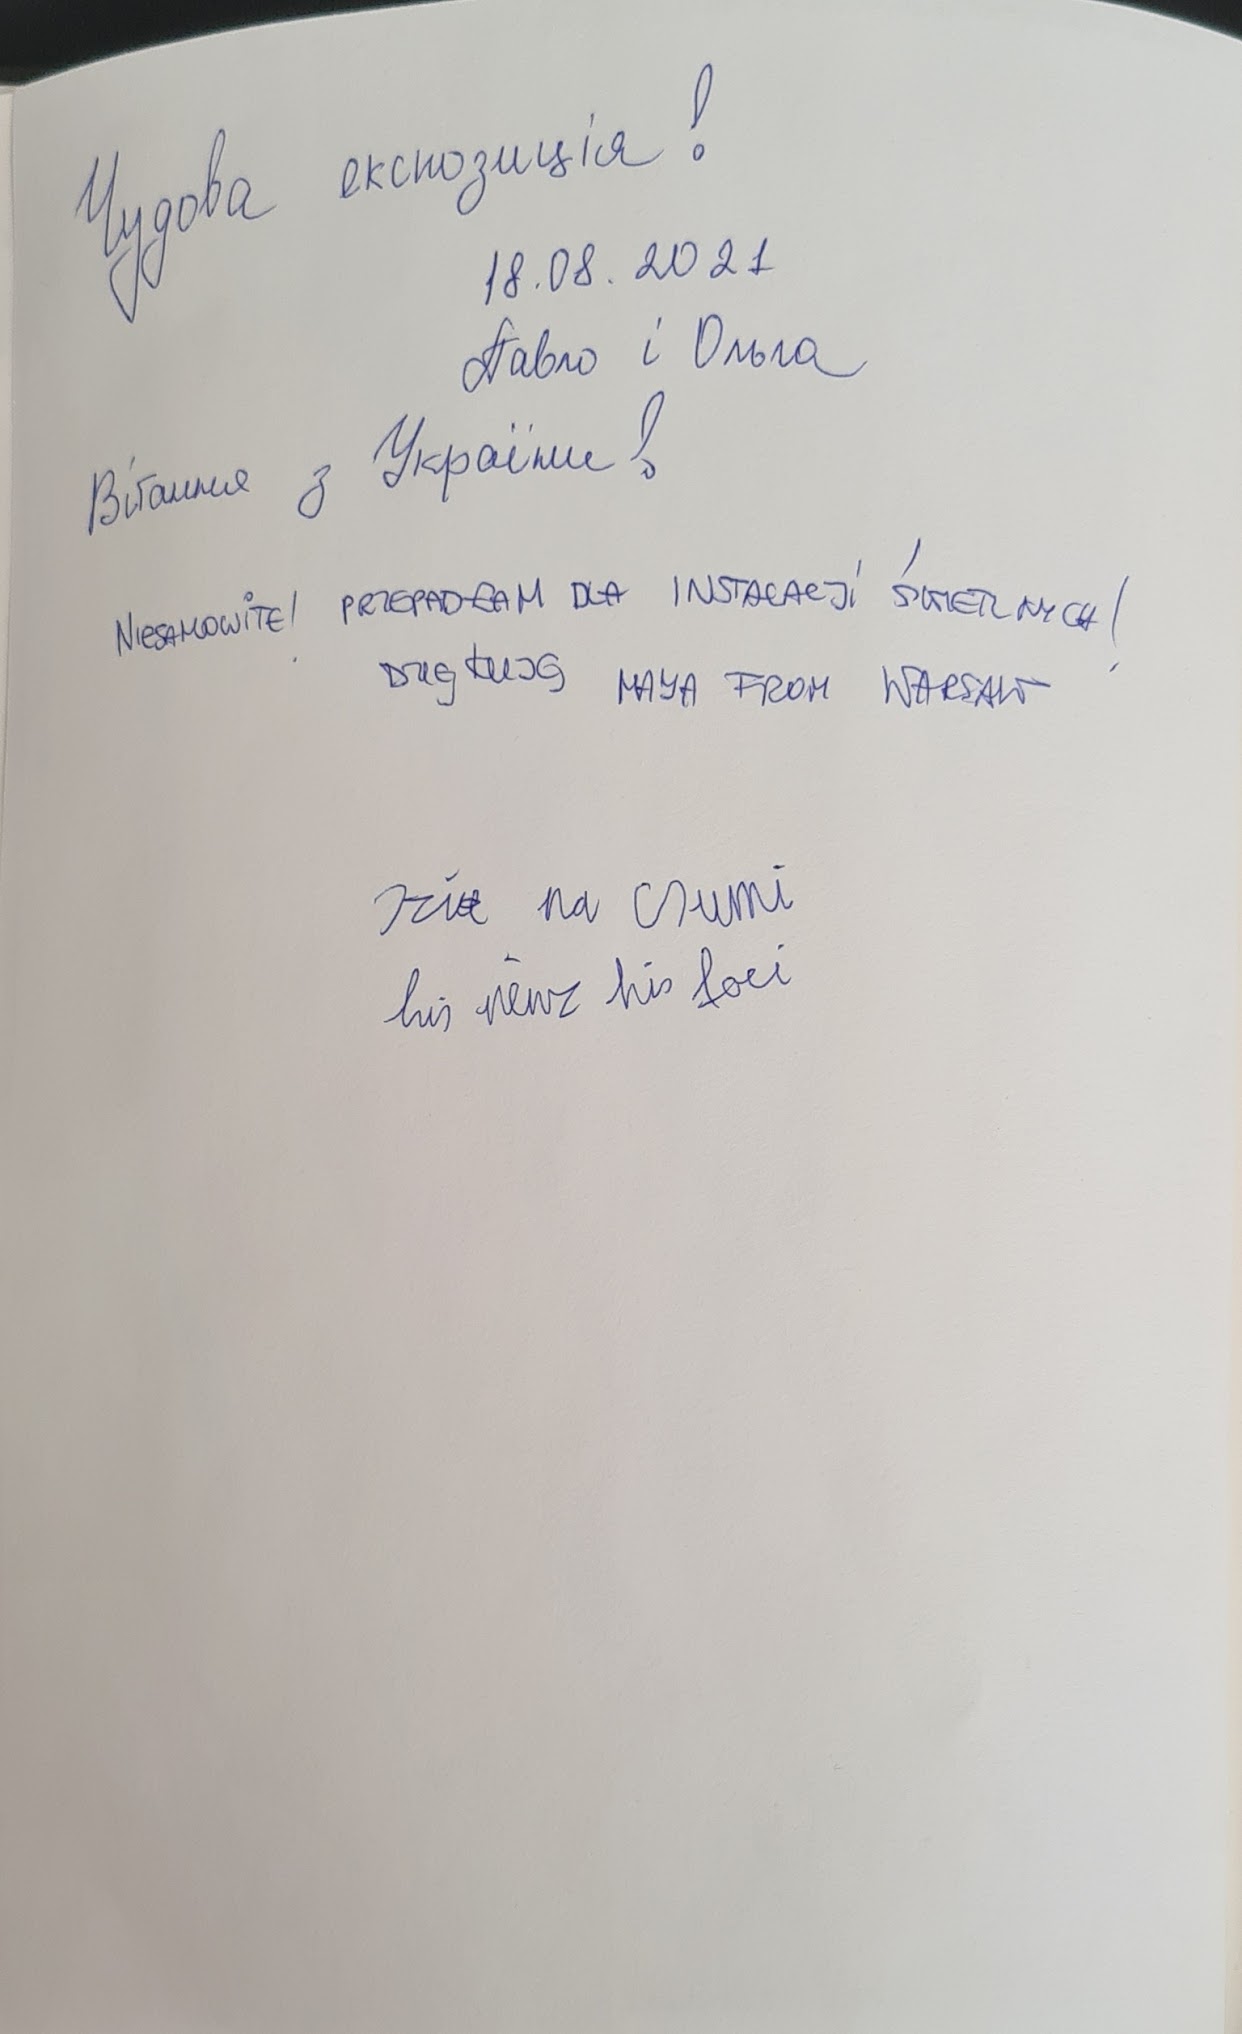 Чудова експозиція!
18.08.2021
Павло і Ольга
Вітання з України!
NIESAMOWITE! PRZEPADŁAM DLA INSTALACJI ŚWIETLNYCH!
DZIĘKUJĘ MAYA FROM WARSAW
na
his his foci